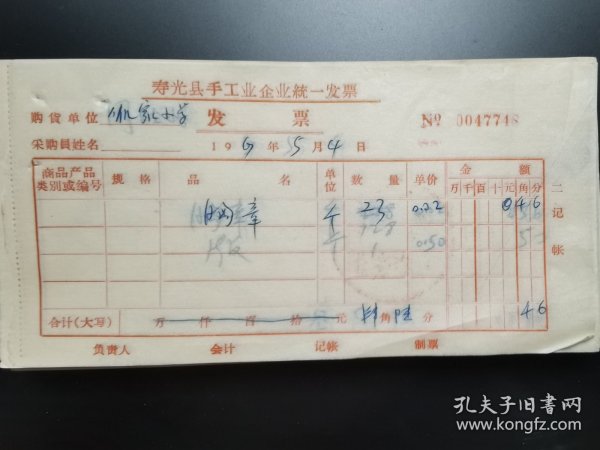 寿光县手工业企业統一发票
购货单位 小学 发票 № 0047748
采购員姓名 196 年 5 月 4 日
商品产品类別或编号 规格 品名 单位 数量 单价 金额
万 千 百 十 元 角 分
章 个 23 0.02 0 4 6
个 1 0.50 5
合计(大写) 万 仟 百 拾 元 肆 角 陆 分 4 6
二记帐
负责人 会计 记帐 制票
孔夫子旧书网
www.kongfz.com